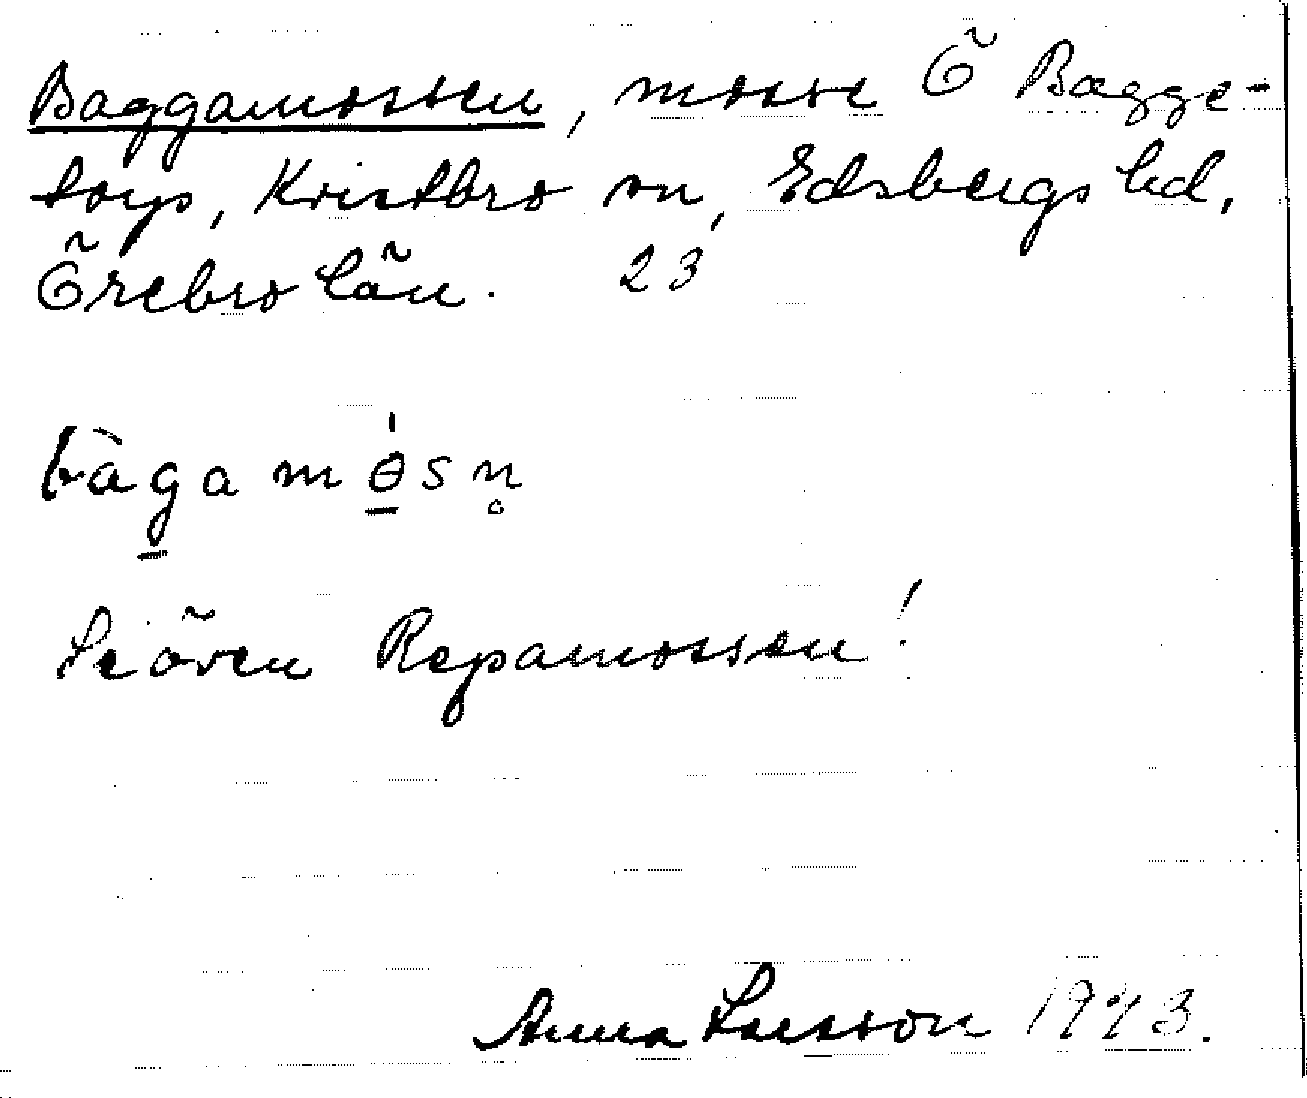 Baggamossen, mosse Ö Bagge-
torp, Kvistbro sn, Edsbergs hd,
Örebro län. 23
bàgamɵ̀sn̥
Se även Repamossen!
Anna Larsson 1943.